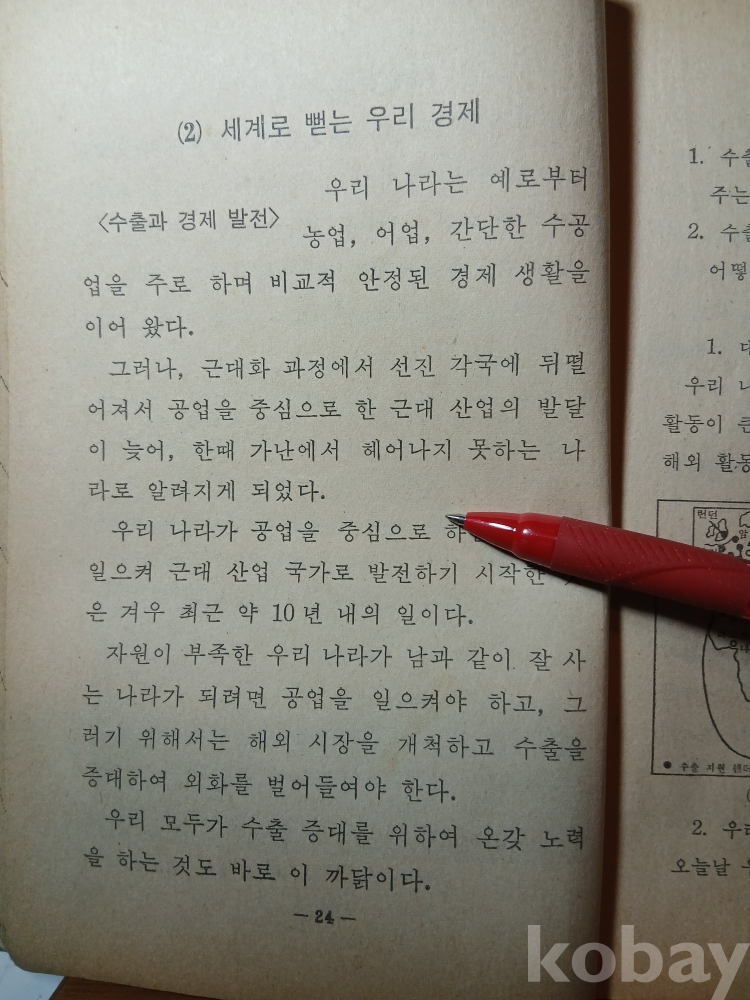 (2) 세계로 뻗는 우리 경제
<수출과 경제 발전>
우리 나라는 예로부터
농업, 어업, 간단한 수공
업을 주로 하며 비교적 안정된 경제 생활을
이어 왔다.
그러나, 근대화 과정에서 선진 각국에 뒤떨
어져서 공업을 중심으로 한 근대 산업의 발달
이 늦어, 한때 가난에서 헤어나지 못하는 나
라로 알려지게 되었다.
우리 나라가 공업을 중심으로
일으켜 근대 산업 국가로 발전하기 시작한
은 겨우 최근 약 10년 내의 일이다.
자원이 부족한 우리 나라가 남과 같이 잘 사
는 나라가 되려면 공업을 일으켜야 하고, 그
러기 위해서는 해외 시장을 개척하고 수출을
증대하여 외화를 벌어들여야 한다.
우리 모두가 수출 증대를 위하여 온갖 노력
을 하는 것도 바로 이 까닭이다.
— 24 —
1. 수출
주는
2. 수출
어떻
1.
우리
활동이
해외 활동
런던
● 수출 지원 센터
2. 우리
오늘날
kobay